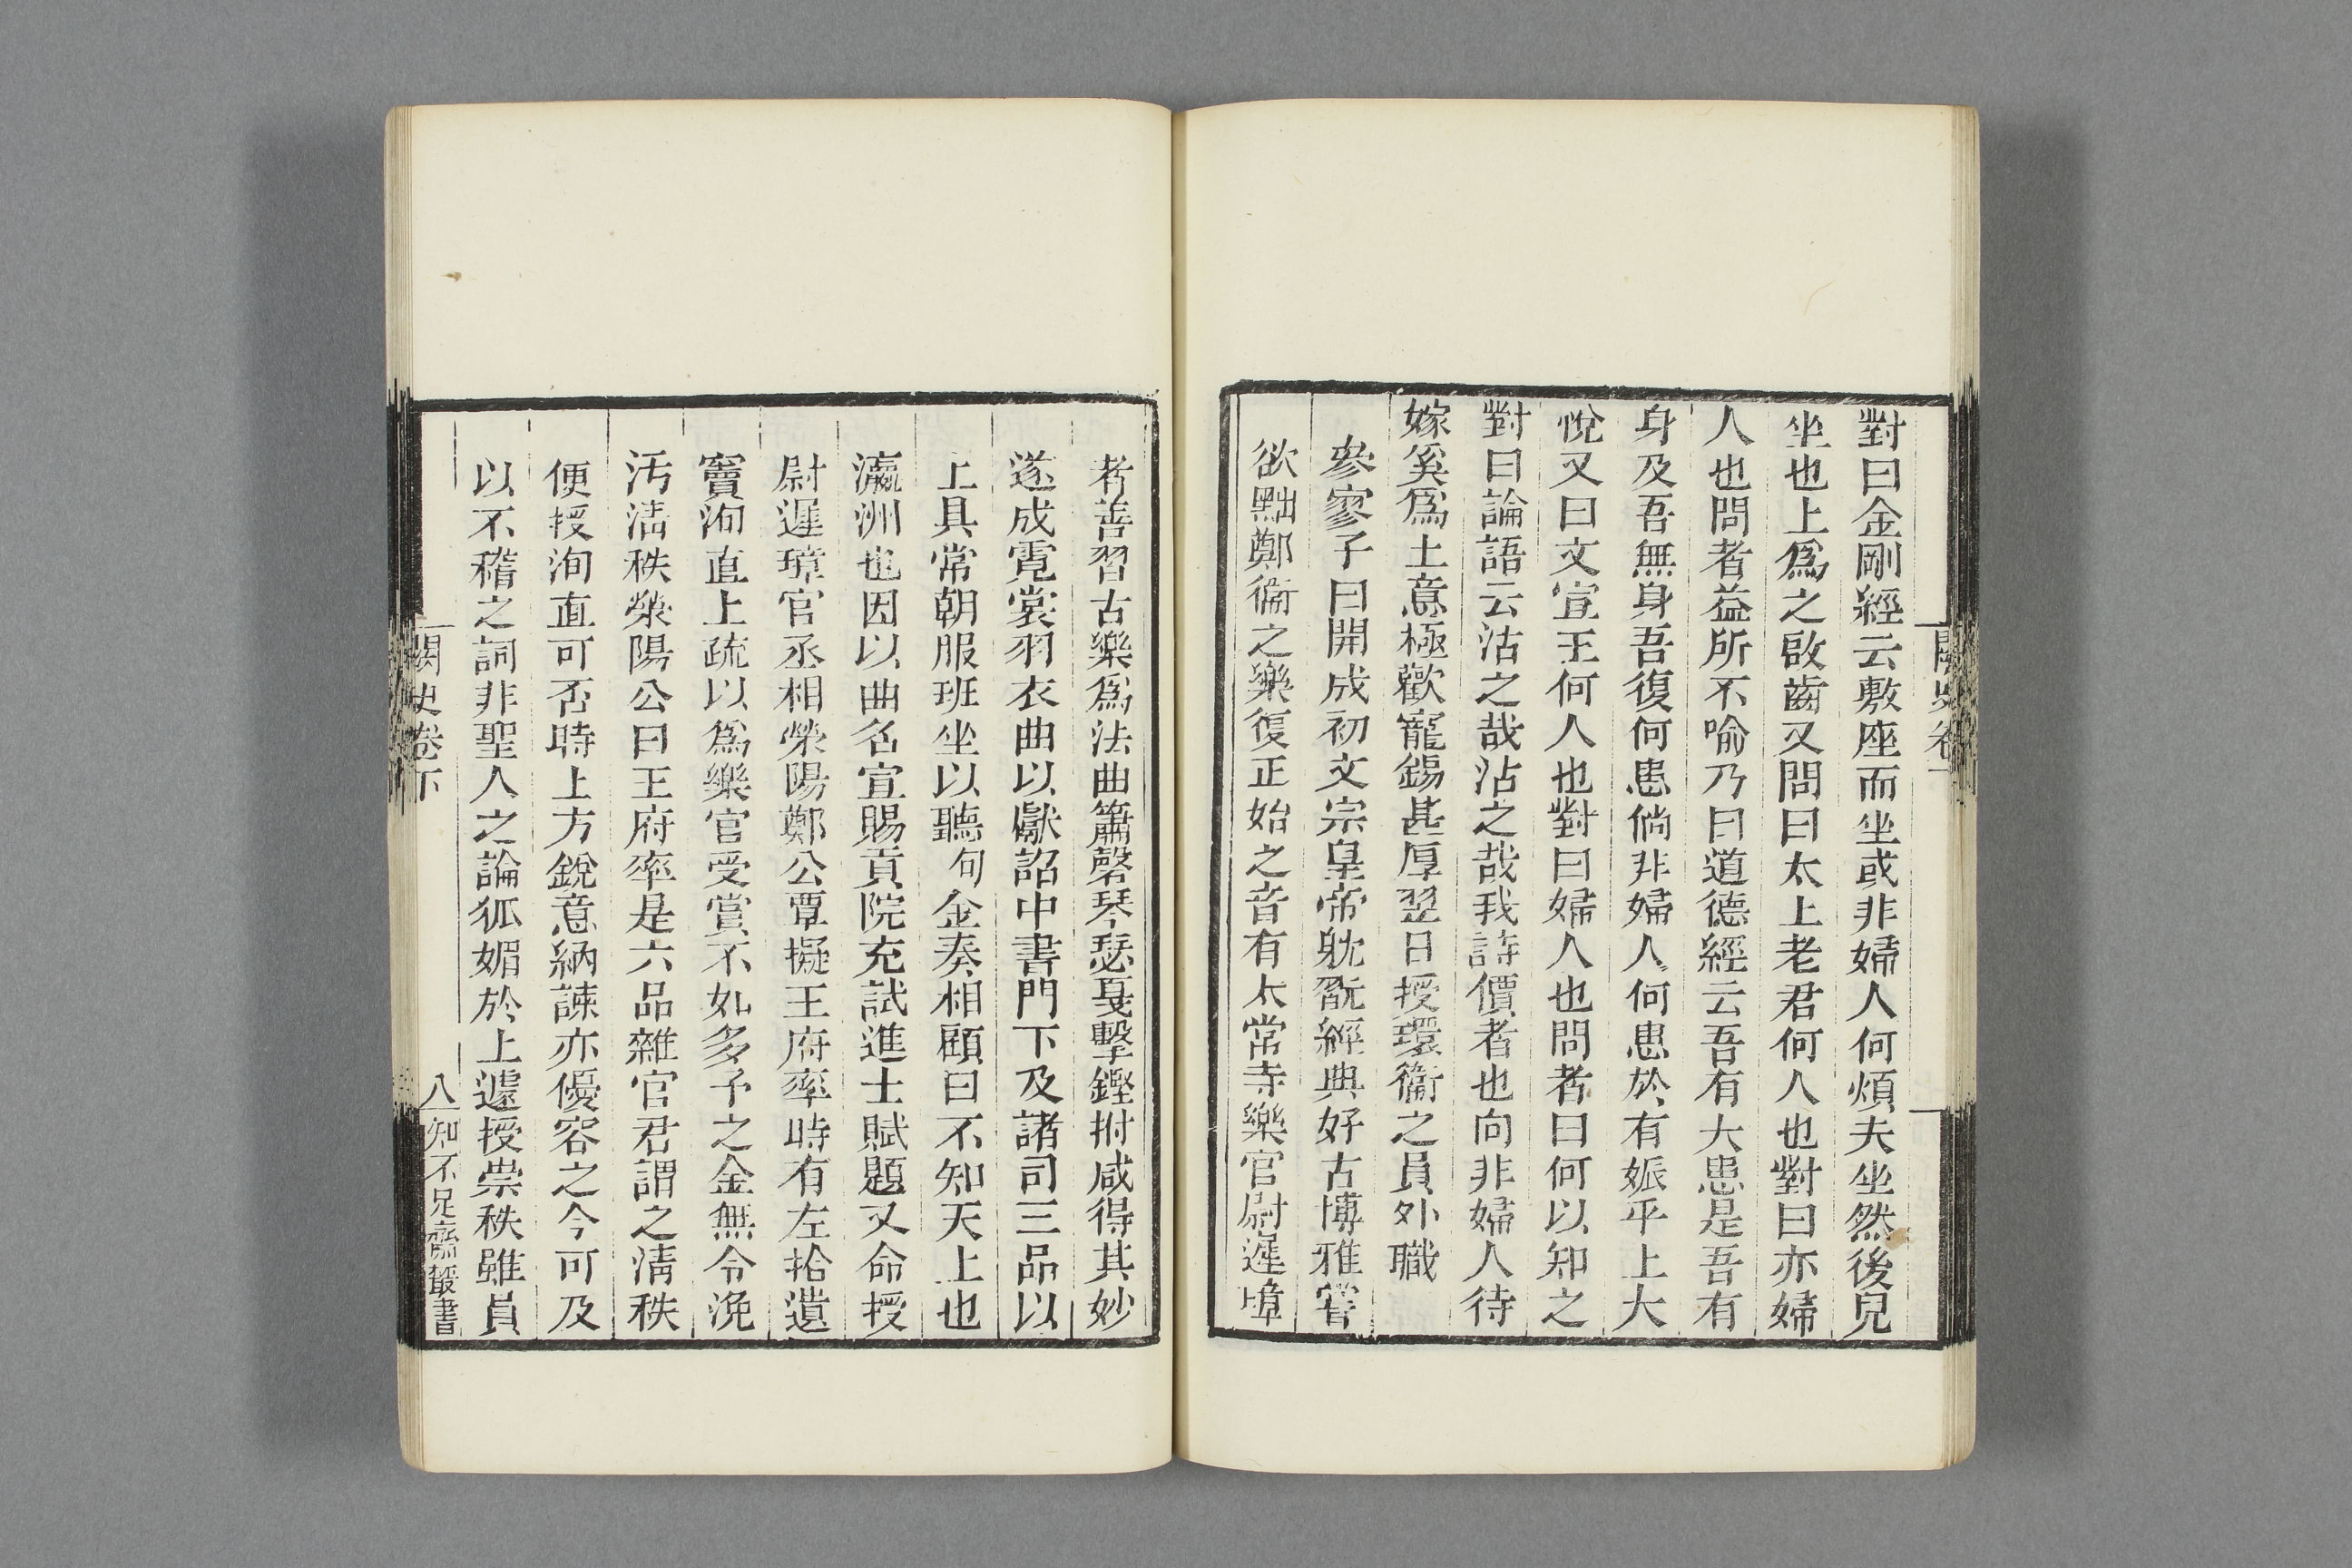 對曰金剛經云敷座而坐或非婦人何煩夫坐然後兒
坐也上爲之啟齒又問曰太上老君何人也對曰亦婦
人也問者益所不喻乃曰道德經云吾有大患是吾有
身及吾無身吾復何患倘非婦人何患於有娠乎上大
悅又曰文宣王何人也對曰婦人也問者曰何以知之
對曰論語云沽之哉沽之哉我詩價者也向非婦人待
嫁奚爲土意極歡寵錫甚厚翌日授環衞之員外職
參寥子曰開成初文宗皇帝躭翫經典好古博雅嘗
欲黜鄭衞之樂復正始之音有太常寺樂官尉遲璋
者善習古樂爲法曲簫磬琴瑟戛擊鏗拊咸得其妙
遂成霓裳羽衣曲以獻詔中書門下及諸司三品以
上具常朝服班坐以聽句金奏相顧曰不知天上也
瀛洲也因以曲名宣賜貢院充試進士賦題又命授
尉遲璋官丞相滎陽鄭公覃擬王府率時有左拾遺
竇洵直上疏以爲樂官受賞不如多予之金無令浼
汚淸秩滎陽公曰王府率是六品雜官君謂之淸秩
便授洵直可否時上方銳意納諫亦優容之今可及
以不稽之詞非聖人之論狐媚於上遽授崇秩雖員
闕史卷下
八
知不足齋叢書